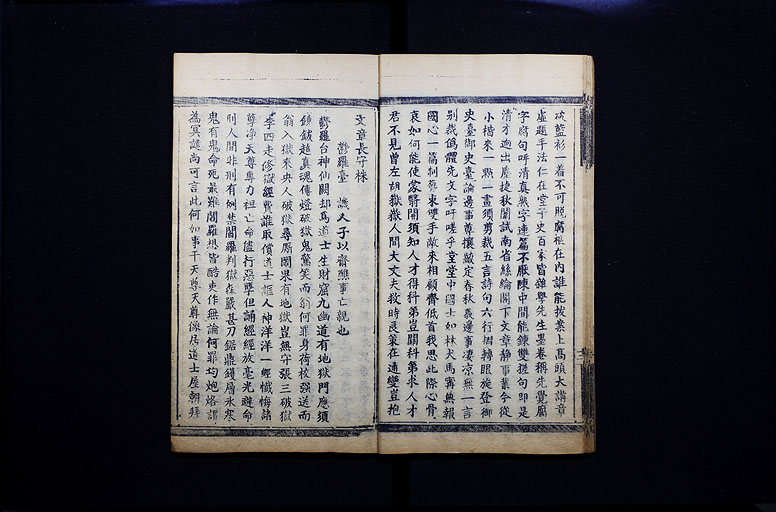 破藍衫一着不可脫腐根在內誰能拔案上高頭大講章
虛題手法仁在堂子史百家皆雜學先生墨卷稱先覺腐
字腐句呼清真熟字連篇不厭陳中間能鍊雙搓句即是
清才迥出塵捷秋闈試南省絲綸閣下文章靜事業今從
小楷來一點一畫須剪裁五言詩句六行摺轉眼旋登御
史臺御史臺論邊事尊攘敵定春秋義邊事凄涼無一言
別裁偽體先文字吁嗟乎堂堂中國士如林犬馬寗無報
國心一篇制藝束雙手敵來相顧齊低首我思此際心骨
哀如何能使蒙翳開須知人才得科第豈關科第求人才
君不見曾左胡嶽嶽人間大丈夫救時良策在通變豈抱
文章長守株
鬱羅臺 譏人子以齋醮事亡親也
鬱羅台神仙闕却為道士生財窟九幽道有地獄門應須
鐃鈸超真魂傳燈破獄鬼驚笑而翁何罪身荷校強送而
翁入獄來央人破獄尋厮鬧果有地獄豈無守張三破獄
李四走修獄經費誰取償道士誑人神洋洋一經懺悔諸
尊凈天尊專力袒亡命儘行惡孽但誦經經放毫光避命
刑人間非刑有例禁閻羅判獄森嚴甚刀鋸鼎鑊層氷寒
鬼有鬼命死最難閻羅想皆酷吏作無論何罪均炮烙謂
為冥謎尚可言此何如事干天尊天尊儼居道士屋朝拜